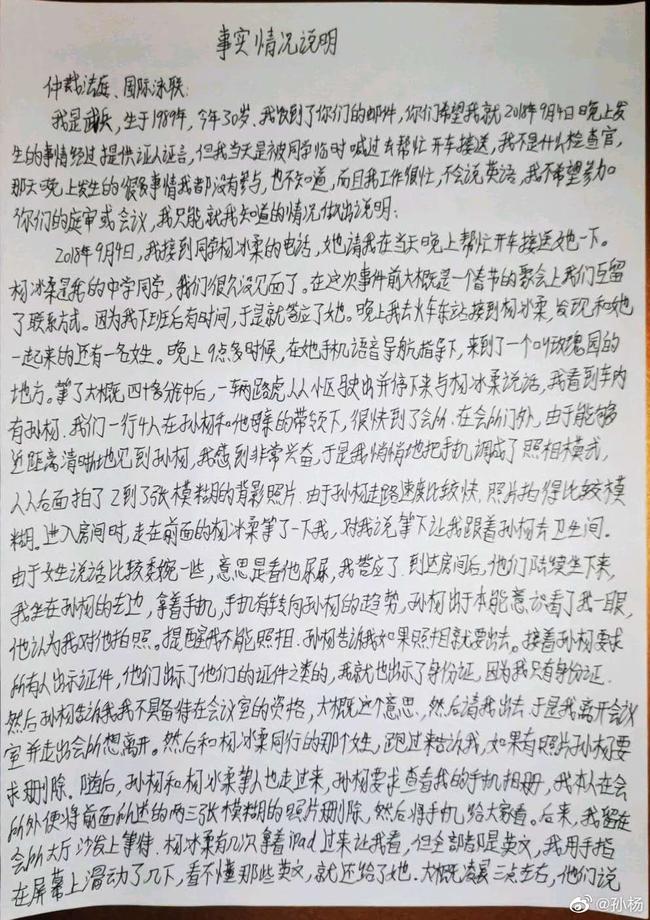 事实情况说明
仲裁法庭、国际泳联:
我是 ，生于1989年，今年30岁、我收到了你们的邮件，你们希望我就2018年9月4日晚上发
生的事情经过提供证人证言，但我当天是被同学临时喊过去帮忙开车接送，我不是什么检查官，
那天晚上发生的很多事情我都没有参与，也不知道，而且我工作很忙，不会说英语，我不希望参加
你们的庭审或会议，我只能就我知道的情况做出说明:
2018年9月4日，我接到同学杨冰柔的电话，她请我在当天晚上帮忙开车接送她一下。
杨冰柔是我的中学同学，我们很久没见面了。在这次事件前大概是一个春节的聚会上我们互留
了联系方式。因为我下班后有时间，于是就答应了她。晚上我去火车东站接到杨冰柔，发现和她
一起来的还有一名女生。晚上9点多时候，在她手机语音导航指导下，来到了一个叫玫瑰园的
地方。等了大概四十多分钟后，一辆路虎从小区驶出并停下来与杨冰柔说话，我看到车内
有孙杨。我们一行4人在孙杨和他母亲的带领下，很快到了会所。在会所门外，由于能够
近距离清晰地见到孙杨，我感到非常兴奋，于是我悄悄地把手机调成了照相模式，
从后面拍了2到了3张模糊的背影照片。由于孙杨走路速度比较快，照片拍得比较模
糊。进入房间时，走在前面的杨冰柔等了一下我，对我说等下让我跟着孙杨去卫生间。
由于女生说话比较委婉一些，意思是看他尿尿，我答应了。到达房间后，他们陆续坐下来，
我坐在孙杨的左边，拿着手机，手机有转向孙杨的趋势，孙杨出于本能意识看了我一眼，
他认为我对他拍照。提醒我不能照相。孙杨告诉我如果照相就要出去。接着孙杨要求
所有人出示证件，他们出示了他们的证件之类的，我就也出示了身份证，因为我只有身份证。
然后孙杨告诉我我不具备待在会议室的资格，大概这个意思，然后请我出去。于是我离开会议
室并走出会所想离开。然后和杨冰柔同行的那个女生，跑过来告诉我，如果有照片孙杨要
求删除。随后，孙杨和杨冰柔等人也走过来，孙杨要求查看我的手机相册，我本人在会
所外便将前面所述的两三张模糊的照片删除，然后将手机给大家看。后来，我留在
会所大厅沙发上等待。杨冰柔有几次拿着iPad过来让我看，但全部都是英文，我用手指
在屏幕上滑动了几下，看不懂那些英文，就还给了她。大概凌晨三点左右，他们说
@孙杨